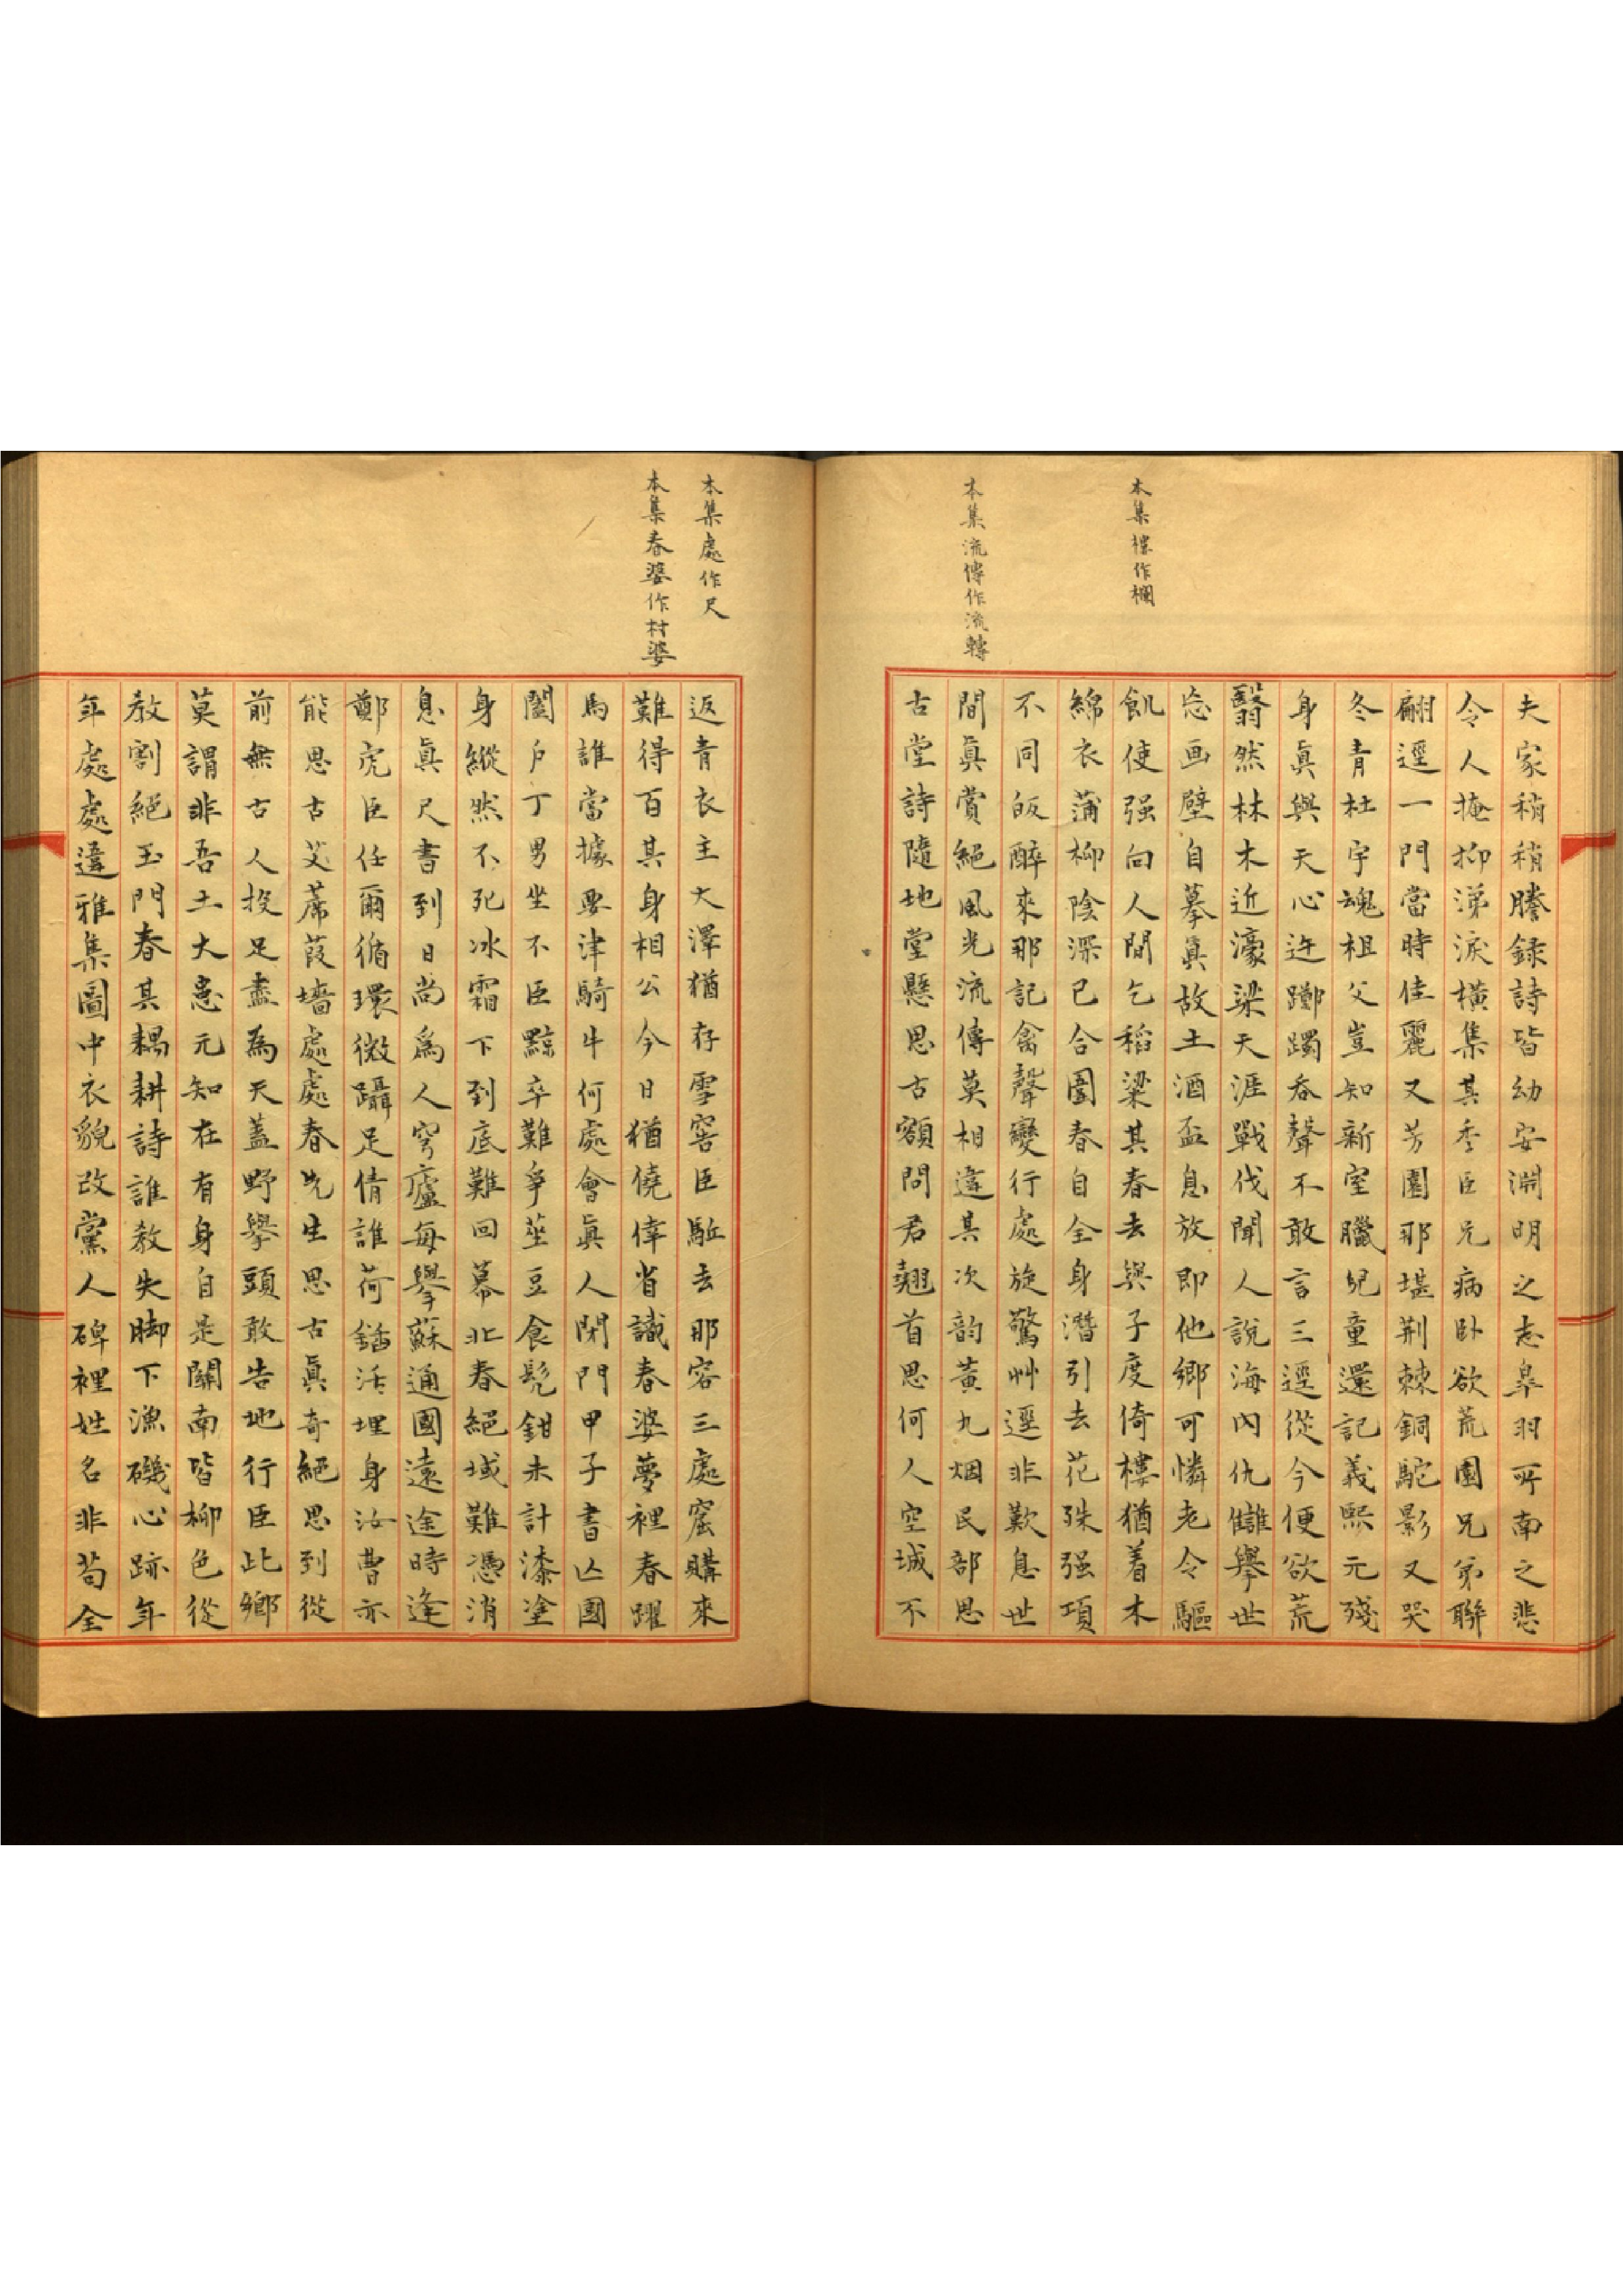 本集樓作欄
本集流傳作流轉
夫家稍稍謄録詩皆幼安淵明之志皋羽所南之悲
令人掩抑涕淚橫集其季臣兄病卧欲荒園兄弟聯
翩逕一門當時佳麗又芳園那堪荆棘銅駝影又哭
冬青杜宇魂祖父豈知新室臘兒童還記義熙元殘
身真與天心迕躑躅吞聲不敢言三逕從今便欲荒
翳然林木近濠梁天涯戰伐聞人說海內仇讎舉世
忘画壁自摹真故土酒盃息放即他鄉可憐老令驅
飢使强向人間乞稻粱其春去與子度倚樓猶着木
綿衣蒲柳陰深已合圍春自全身潛引去花殊强項
不同皈醉來那記禽聲變行處旋驚艸逕非歎息世
間真賞絕風光流傳莫相違其次韵黃九烟民部思
古堂詩隨地堂懸思古額問君翹首思何人空城不
本集處作尺
本集春婆作村婆
返青衣主大澤猶存雪窖臣駈去那容三處窟購來
難得百其身相公今日猶僥倖省識春婆夢裡春躍
馬誰當據要津騎牛何處會真人閉門甲子書亾國
闔户丁男坐不臣黥卒難爭莝豆食髡鉗未計漆塗
身縱然不死冰霜下到底難回幕北春絕域難憑消
息真尺書到日尚爲人穹廬每舉蘇通國遠途時逢
鄭虎臣任爾循環微躡足倩誰荷鍤活埋身汝曹亦
能思古艾蓆葭墻處處春先生思古真奇絕思到從
前無古人投足盡為天蓋野舉頭敢告地行臣此鄉
莫謂非吾土大患元知在有身自是關南皆柳色從
教割絕玉門春其耦耕詩誰教失脚下漁磯心跡年
年處處違雅集圖中衣貌改黨人碑裡姓名非苟全